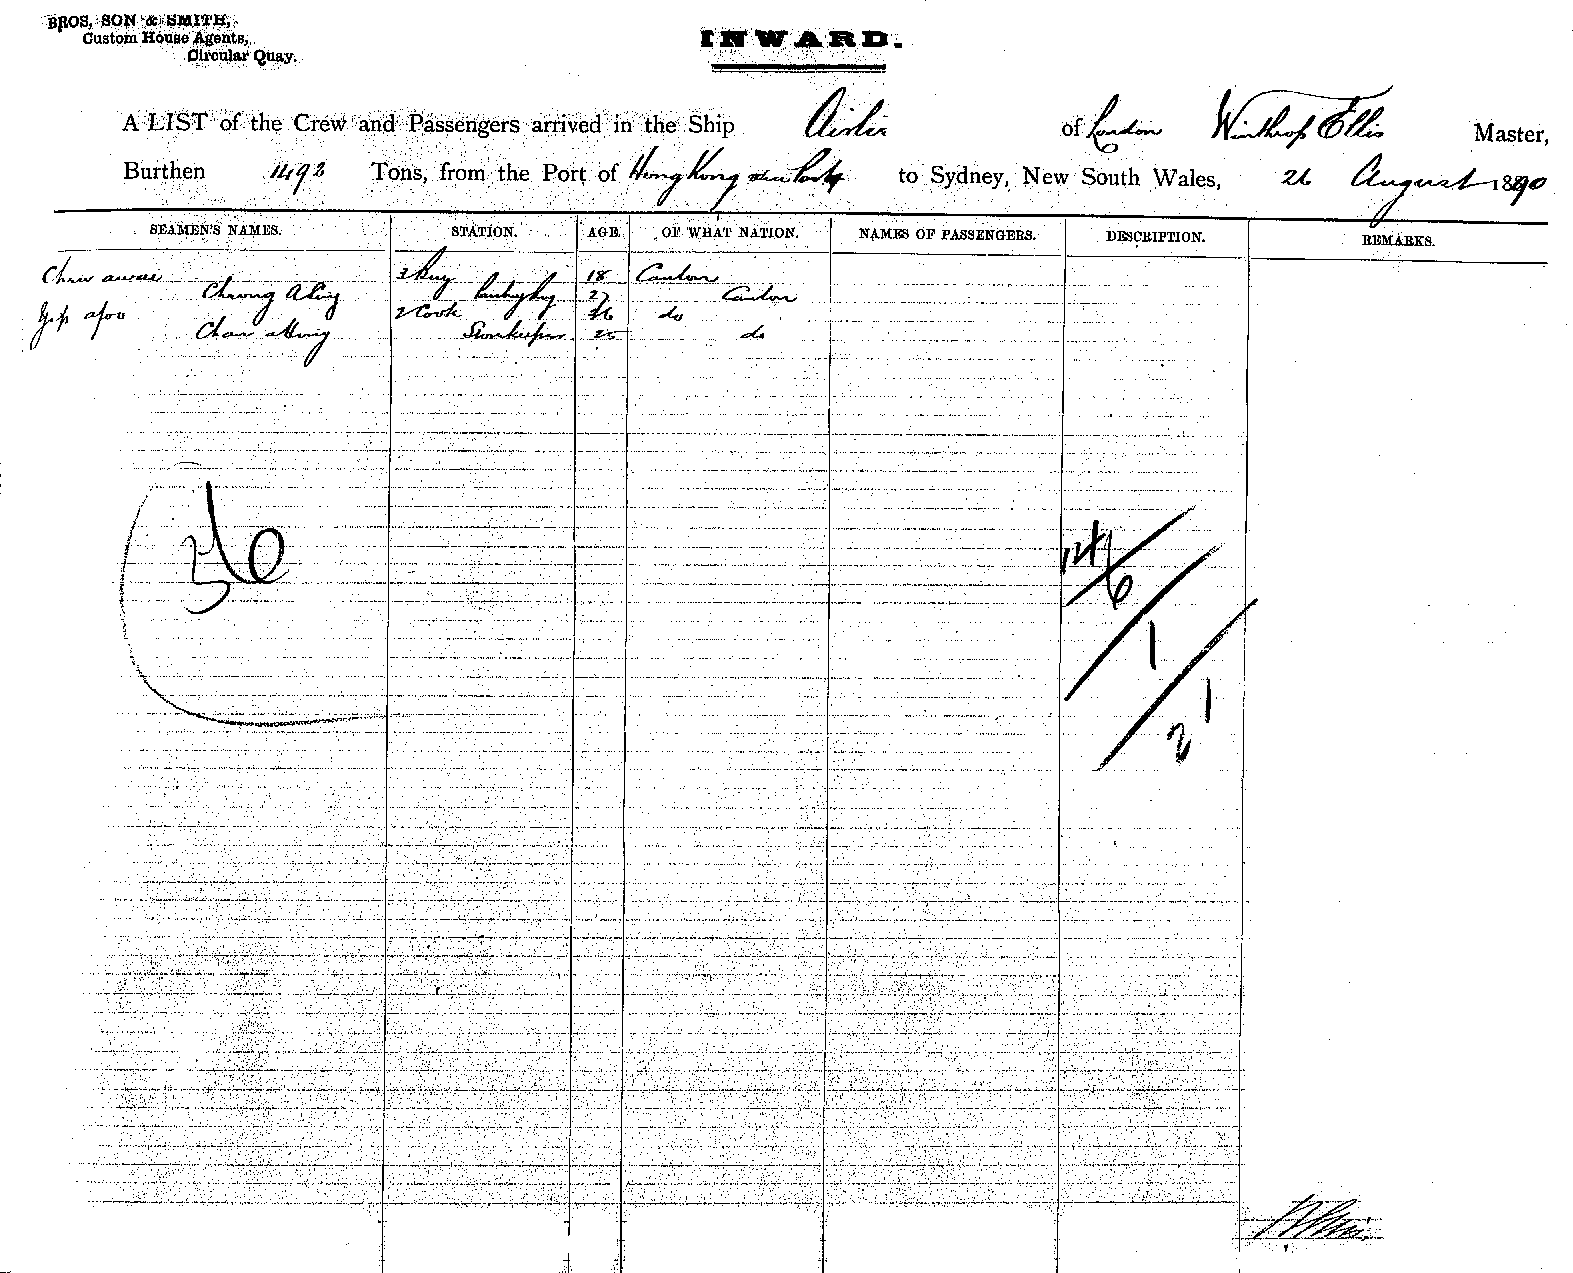 BROS, SON & SMITH,
Custom House Agents,
Circular Quay.
INWARD.
A LIST of the Crew and Passengers arrived in the Ship Airlie of London Winthrop Ellis Master,
Burthen 1492 Tons, from the Port of Hong Kong to Sydney, New South Wales, 26 August 1890
SEAMEN'S NAMES. STATION. AGE. OF WHAT NATION. NAMES OF PASSENGERS. DESCRIPTION. REMARKS.
3 Boy 18 Canton
27 Canton
2 Cook 36 do
Chan Storekeeper 25 do
36
1
1
2